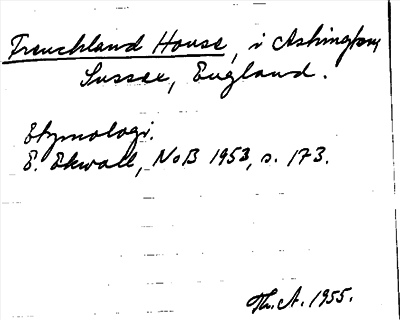 Trenchland House, i Ashington,
Sussex, England.
Etymologi.
E. Ekwall, NoB 1953, s. 173.
Th. A. 1955.